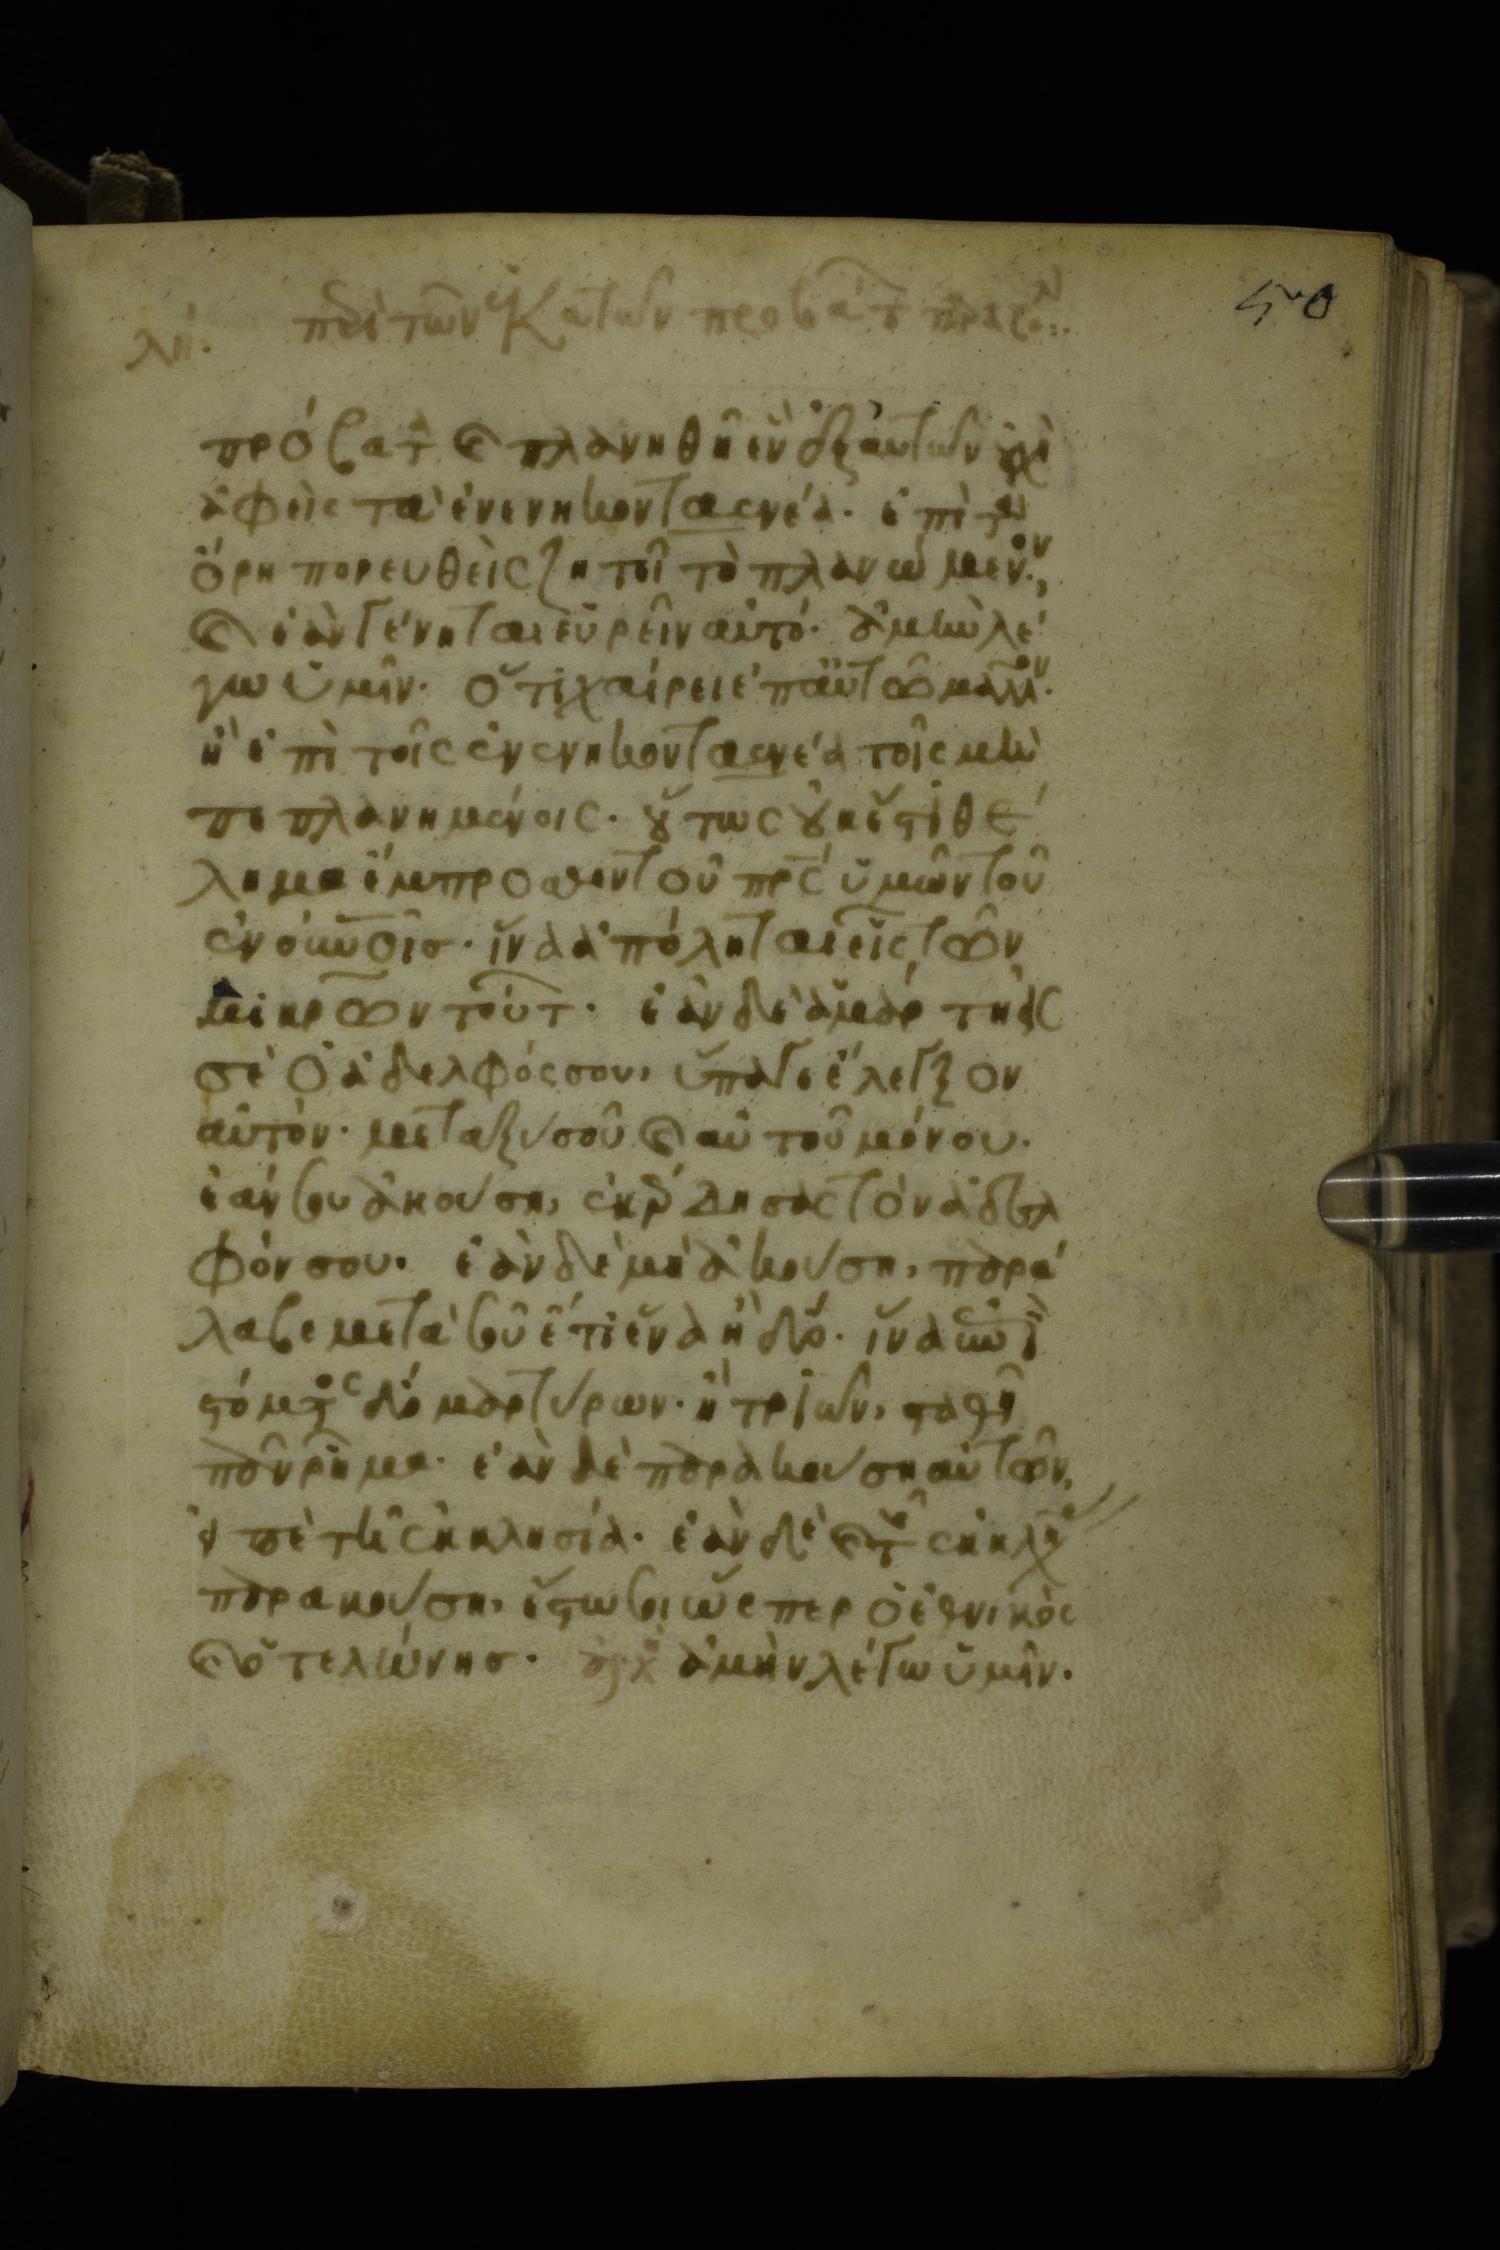 λη. περὶ τῶν ἑκατὸν προβάτ παραβο
50
πρόβατ καὶ πλανηθῆ ἓν ἐξ αὐτῶν οὐχὶ
ἀφεὶς τὰ ἐνενηκονταεννέα. ἐπὶ τὰ
ὄρη πορευθεὶς ζητεῖ τὸ πλανώμενον.
καὶ ἐὰν γένηται εὑρεῖν αὐτό. ἀμὴν λέ
γω ὑμῖν. ὅτι χαίρει ἐπ αὐτῶ μᾶλλον.
ἢ ἐπὶ τοῖς ἐνενηκονταενέα τοῖς μὴ
πεπλανημένοις. οὕτως οὐκ ἔστι θέ
λημα ἔμπροσθεν τοῦ πρς ὑμῶν τοῦ
ἐν οὐνοις. ἵνα ἀπόληται εἷς τῶν
μικρῶν τούτ. ἐὰν δὲ ἁμαρτήσ
σὲ ὁ ἀδελφός σου, ὕπαγε ἔλεγξον
αὐτόν. μεταξὺ σοῦ καὶ αὐτοῦ μόνου.
ἐάν σου ἀκούση, ἐκέρδησας τὸν ἀδελ
φόν σου. ἐὰν δὲ μὴ ἀκούση, παρά
λαβε μετὰ σοῦ ἔτι ἕνα ἢ δύο. ἵνα ἐπὶ
στόματος δύο μαρτύρων. ἢ τριῶν, σταθῆ
πᾶν ῥῆμα. ἐὰν δὲ παρακούση αὐτῶν,
εἰπὲ τῆ ἐκκλησία. ἐὰν δὲ καὶ τῆς ἐκκλη
παρακούση, ἔστω σοι ὥσπερ ὁ ἐθνικὸς
καὶ ὁ τελώνησ. ἀρχ ἀμὴν λέγω ὑμῖν.